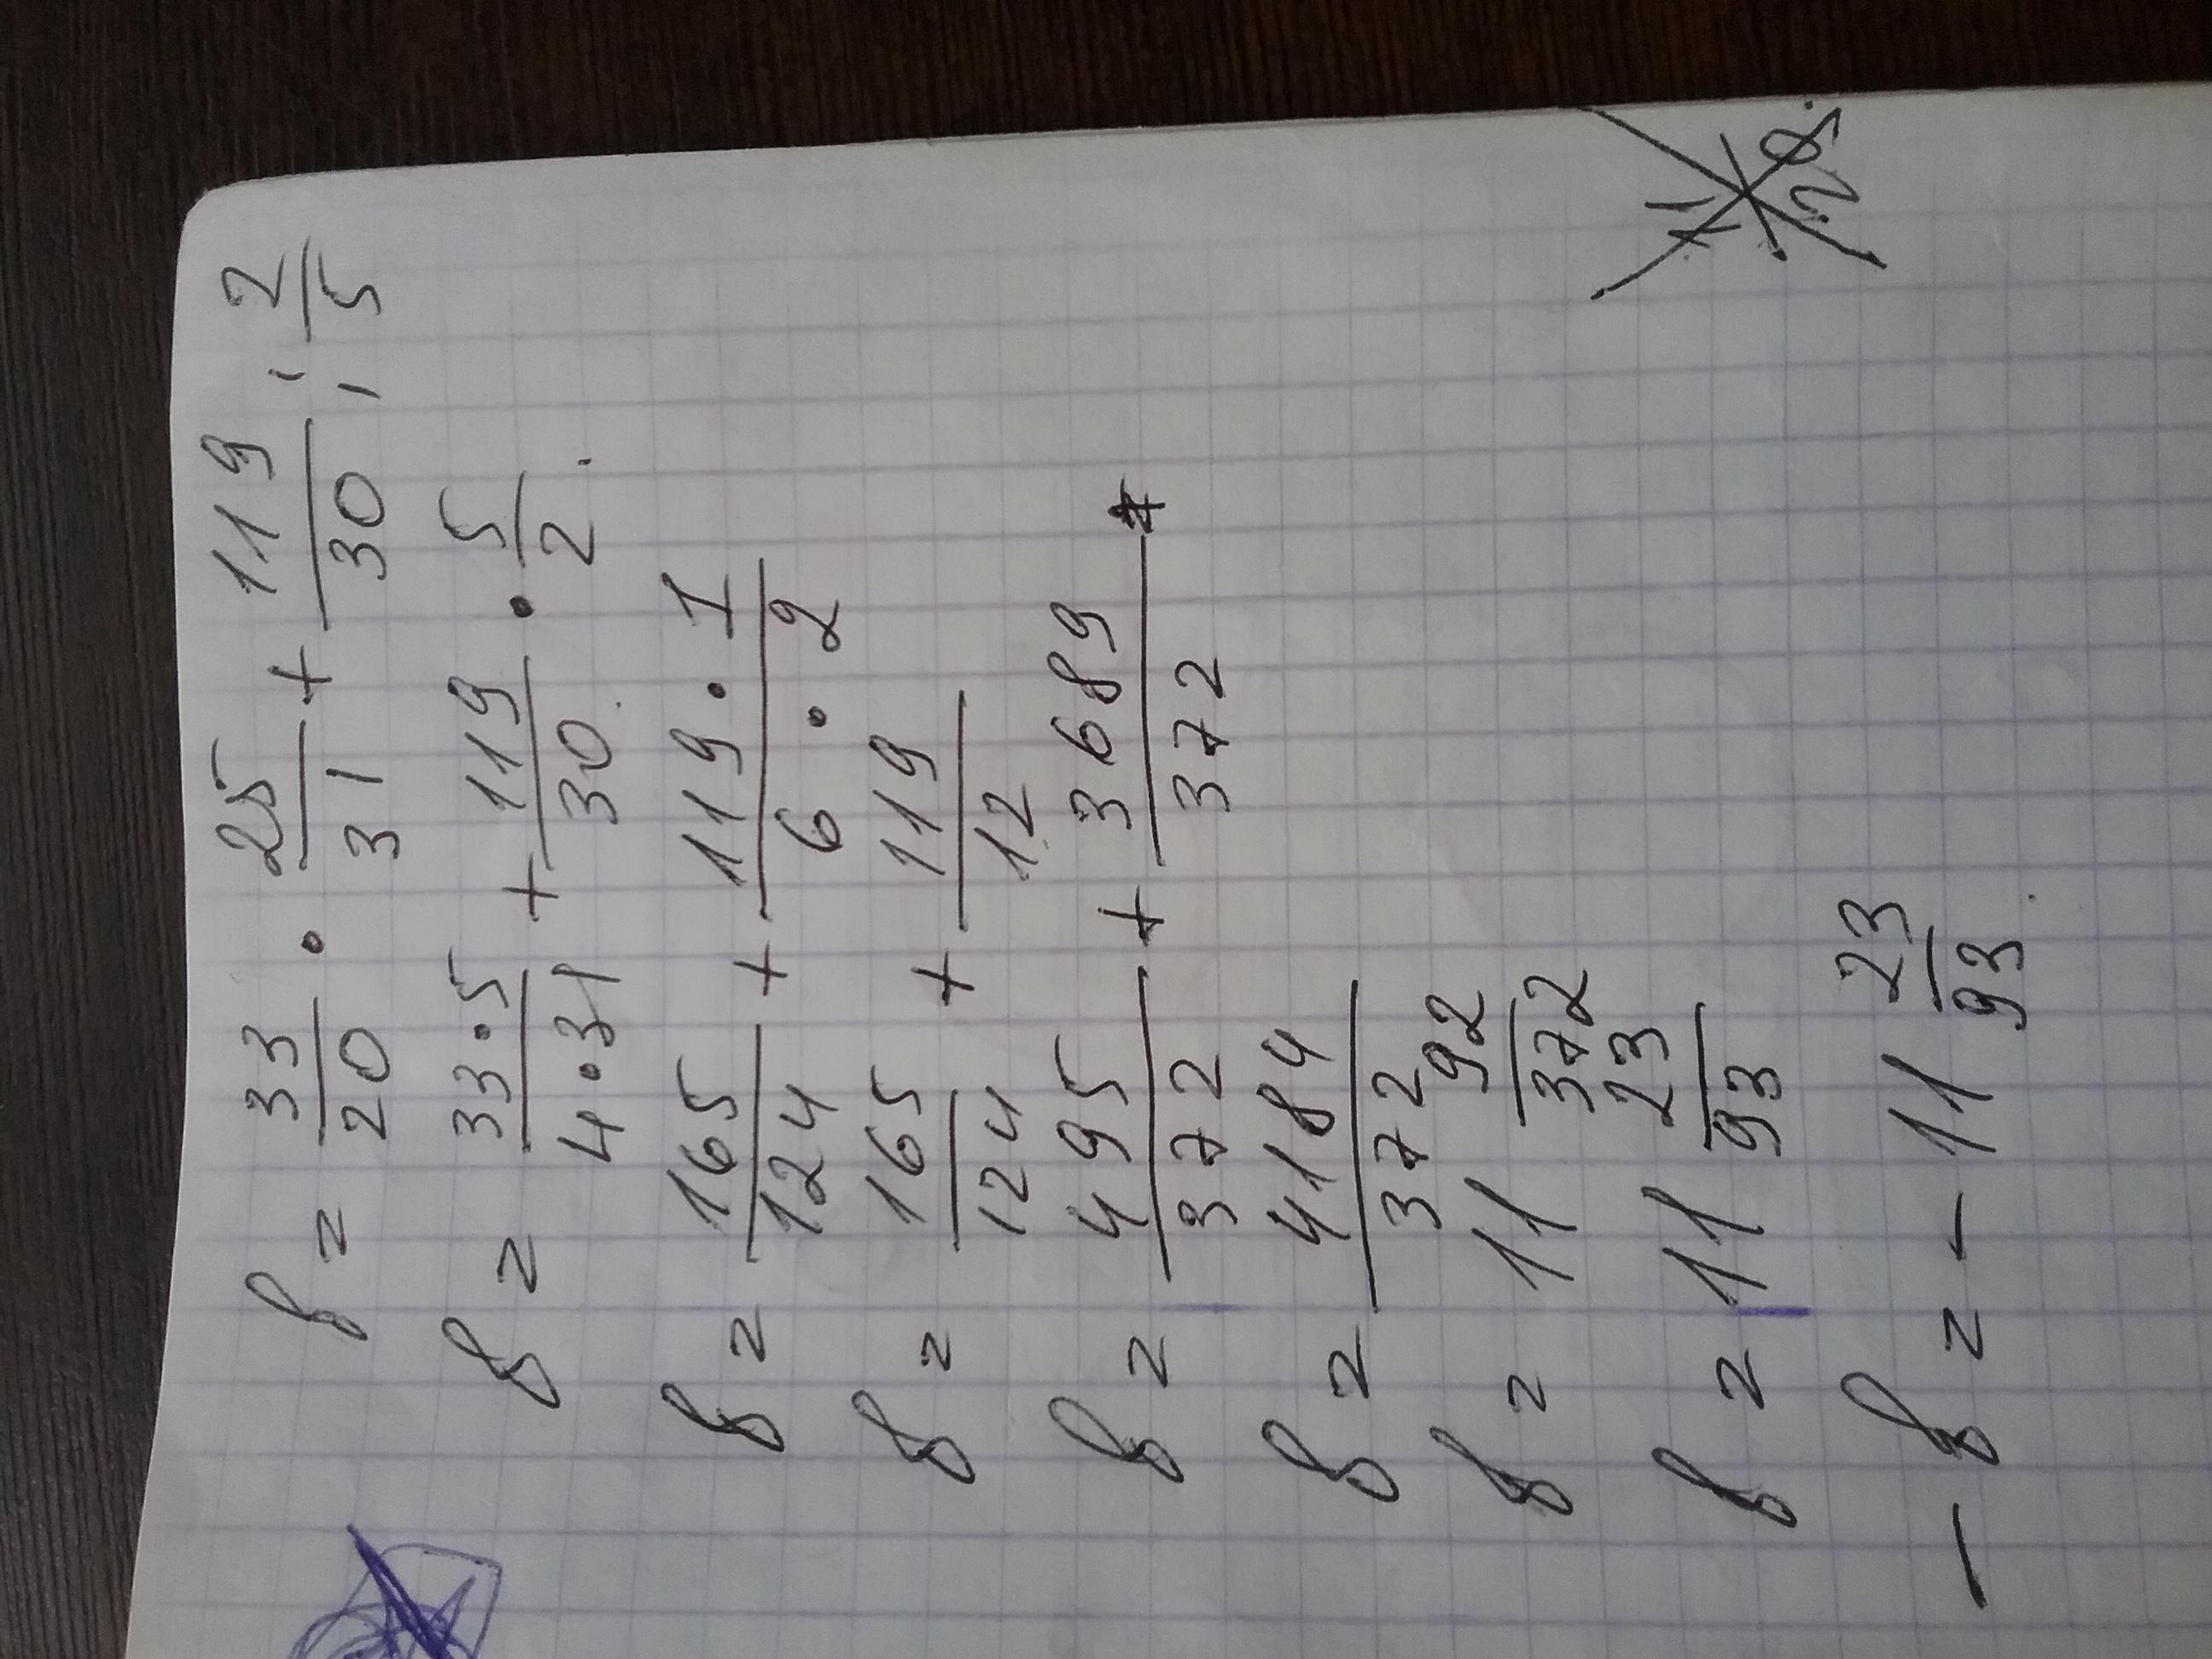 b = 33/20 · 25/31 + 119/30 : 2/5
b = 33·5/4·31 + 119/30 · 5/2
b = 165/124 + 119·1/6·2
b = 165/124 + 119/12
b = 495/372 + 3689/372
b = 4184/372
b = 11 92/372
b = 11 23/93
-b = -11 23/93